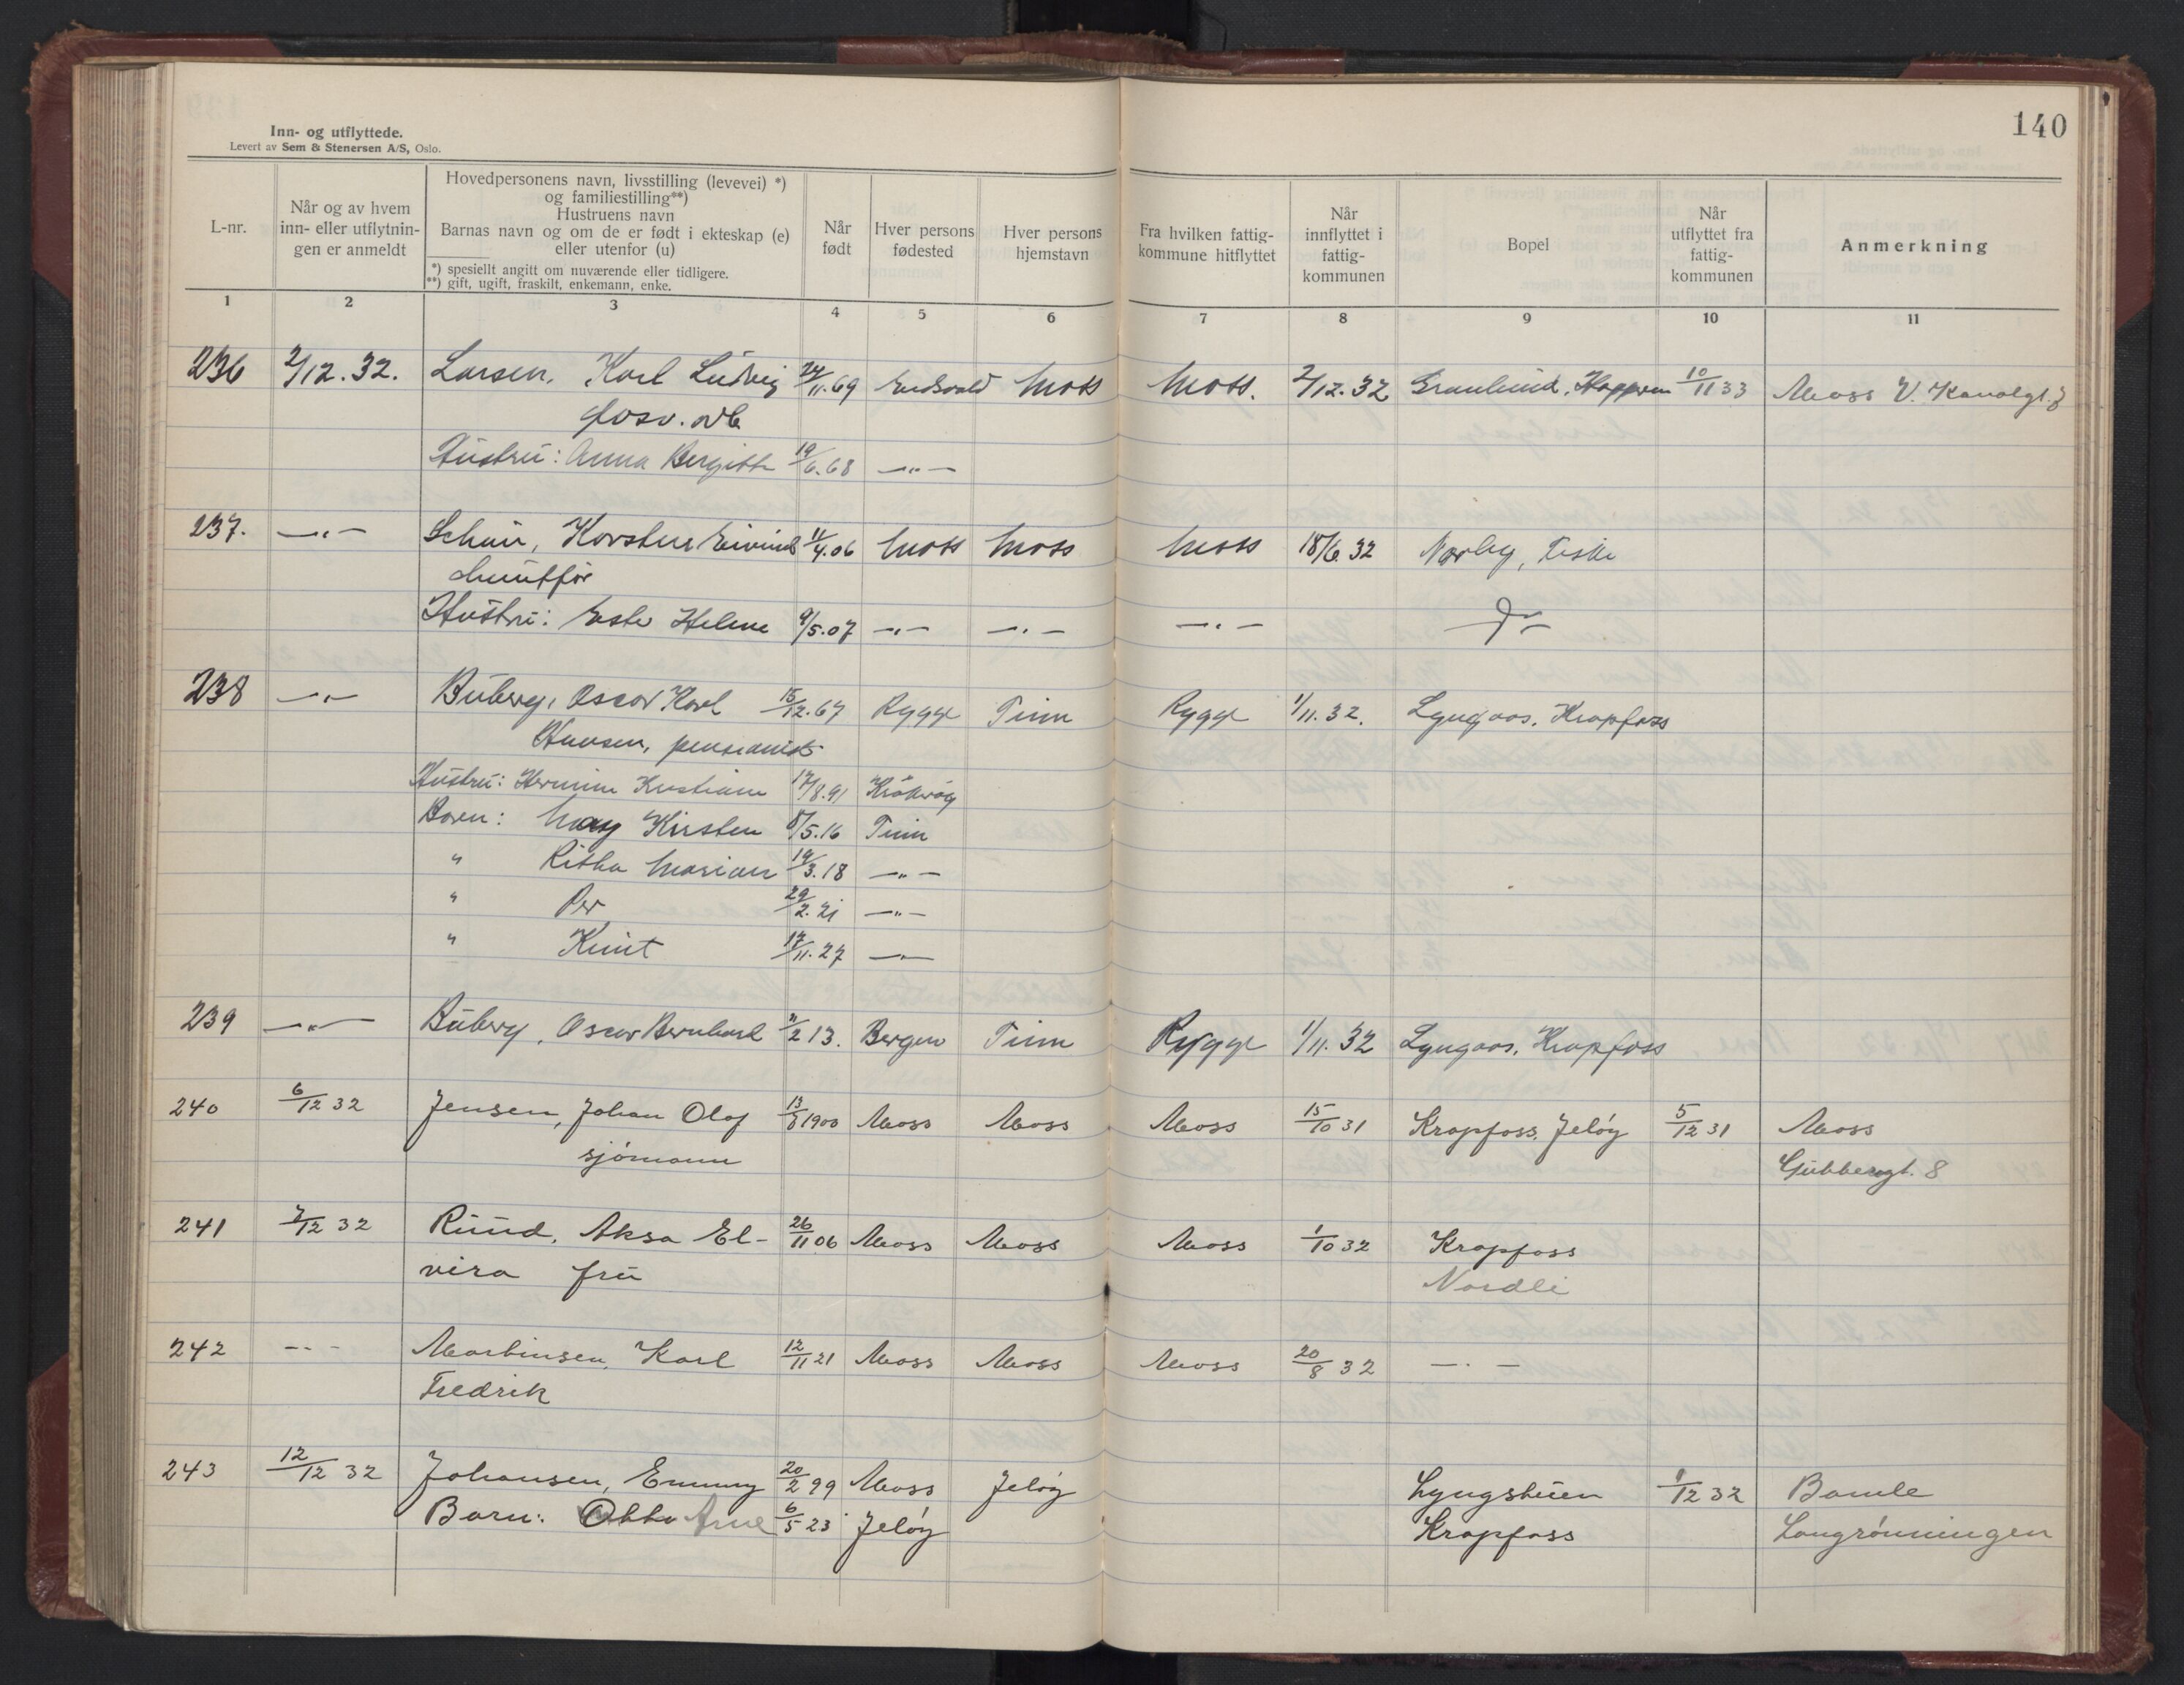 140
Inn- og utflyttede.
Levert av Sem & Stenersen A/S, Oslo.
L-nr.
Når og av hvem
inn- eller utflytnin-
gen er anmeldt
Hovedpersonens navn, livsstilling (levevei) *)
og familiestilling**)
Hustruens navn
Barnas navn og om de er født i ekteskap (e)
eller utenfor (u)
*) spesiellt angitt om nuværende eller tidligere.
**) gift, ugift, fraskilt, enkemann, enke.
Når
født
Hver persons
fødested
Hver persons
hjemstavn
Fra hvilken fattig-
kommune hitflyttet
Når
innflyttet i
fattig-
kommunen
Bopel
Når
utflyttet fra
fattig-
kommunen
Anmerkning
1 2 3 4 5 6 7 8 9 10 11
236 2/12.32. Larsen, Karl Ludvig 24/11.69 Moss Moss. 2/12.32 10/11 33 Moss V. Kanalgt.
Hustru: Anna Bergitte 19/6.68 —"—
237. —"— 11/4.06 Moss Moss Moss 18/6.32 Nørby,
Hustru: Helene 9/5.07 —"— —"— —"—
238 —"— Buberg, Oscar Karl 15/12.67 Rygge Tinn Rygge 1/11.32. Lyngaas, Krapfoss
Hansen, pensionist
Hustru: Kristiane 17/8.91
Barn: May Kirsten 8/5.16 Tinn
" Ritha Marian 19/3.18 —"—
" Per 29/2.21 —"—
" Knut 17/11.27 —"—
239 —"— Buberg, Oscar Bernhard 2 13. Bergen Tinn Rygge 1/11.32 Lyngaas, Krapfoss
240 6/12 32 Jensen, Johan Olaf 13/8 1900 Moss Moss Moss 15/10 31 Krapfoss, Jeløy 5/12 31 Moss
sjømann Gubbesgt. 8
241 7/12 32 Ruud, Aksa El- 26/11 06 Moss Moss Moss 1/10 32 Krapfoss
vira fru Nordli
242 —"— Martinsen, Karl 12/11 21 Moss Moss Moss 20/8 32 —"—
Fredrik
243 12/12 32 Johansen, Emmy 20/2 99 Moss Jeløy Lyngstuen 1/12 32 Bamle
Barn: Otto Arne 6/5 23 Jeløy Krapfoss Langrønningen